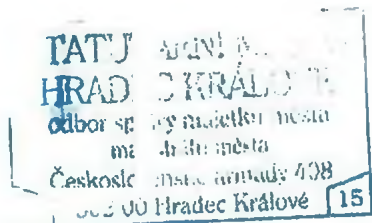 HRADEC KRÁLOVÉ
odbor správy majetku města
magistrátu města
Československé armády 408
502 00 Hradec Králové 15